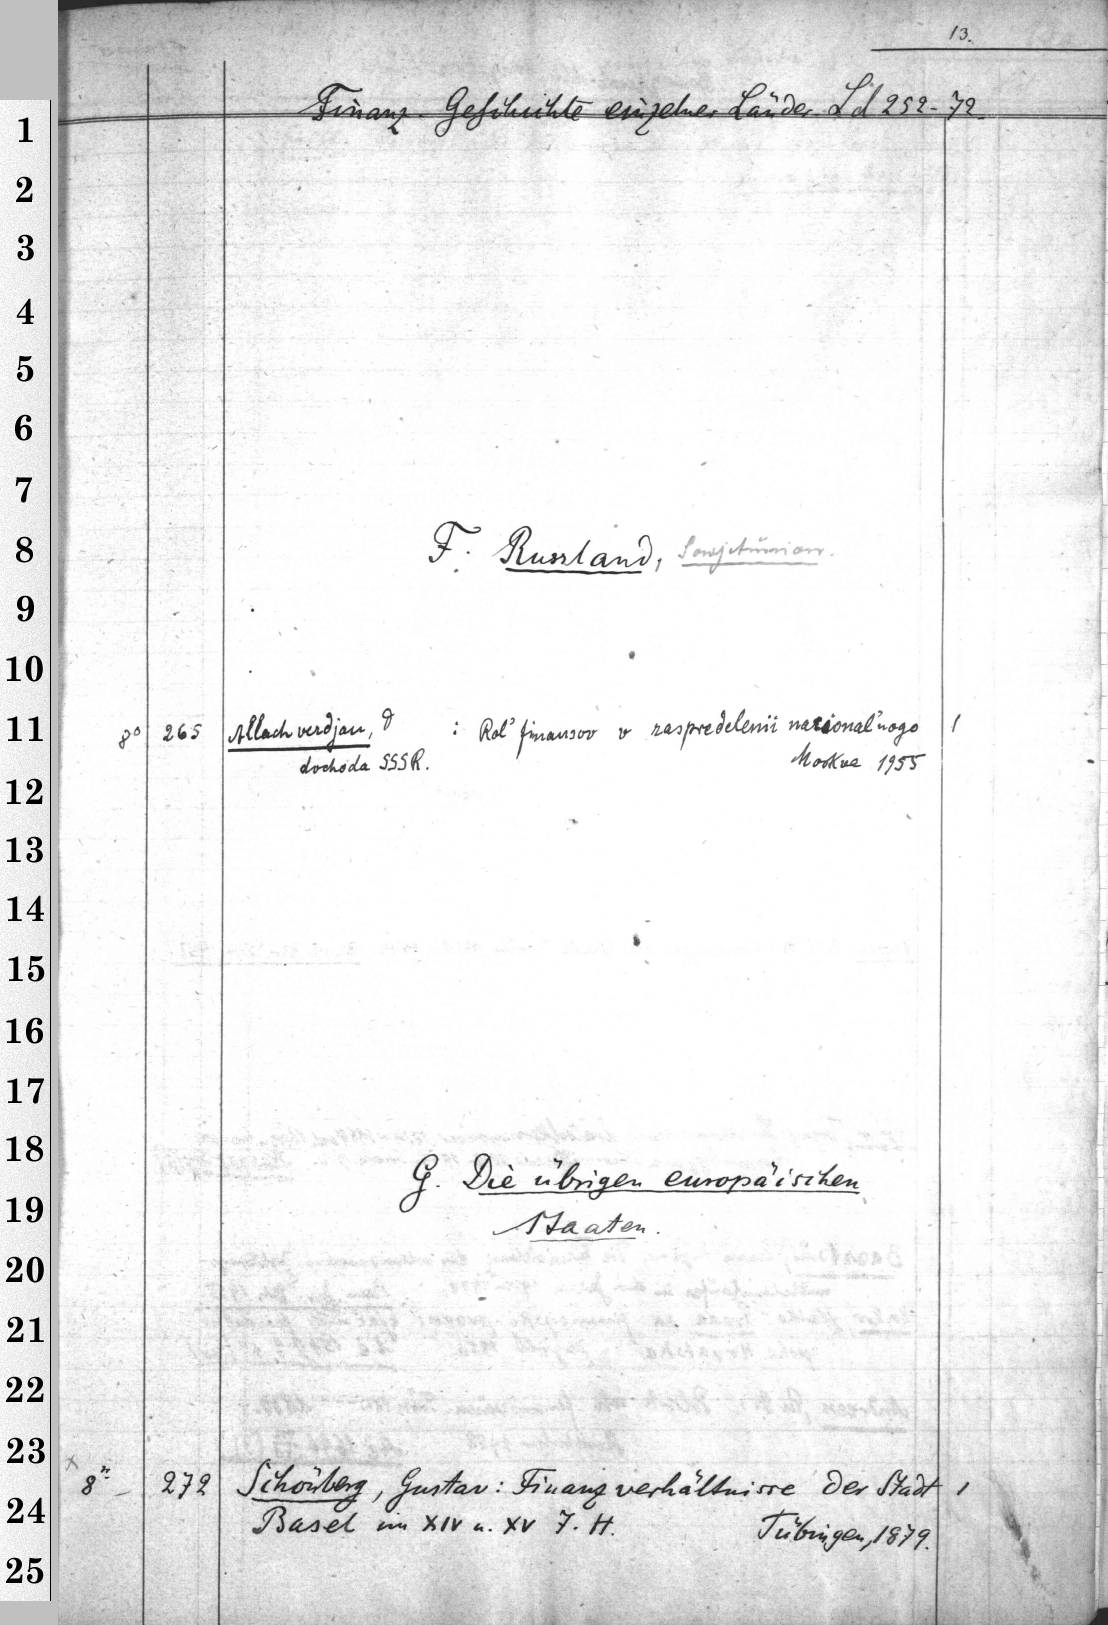 13.
Finanz-Geschichte einzelner Länder. Ld 252-72.
1
2
3
4
5
6
7
8
F. Russland, Sowjetunion.
9
10
11
8° 265 Allachverdjan, D : Rol' finansov v raspredelenii nacional'nogo 1
dochoda SSSR. Moskva 1955
12
13
14
15
16
17
18
G. Die übrigen europäischen
19
Staaten.
20
21
22
23
x 8° 272 Schönberg, Gustav: Finanzverhältnisse der Stadt 1
24
Basel im XIV u. XV J. H. Tübingen, 1879.
25